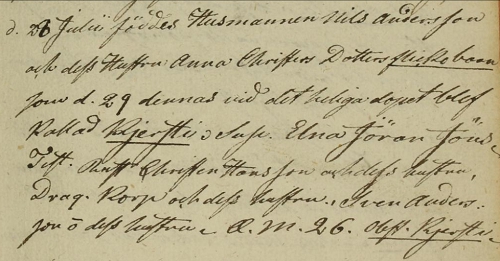 d. 28 Julii föddes Husmannen Nils Andersson
och dess Hustru Anna Christers Dotters flickebarn
som d. 29 dennas vid det heliga dopet blef
Kallad Kjersti, Susc. Elna Jöran Jöns-
Test. Christen Hansson och dess hustru,
Drag. Korp och dess hustru, Sven Anders-
son o dess hustru. Æ. M. 26. Obst. Kjersti